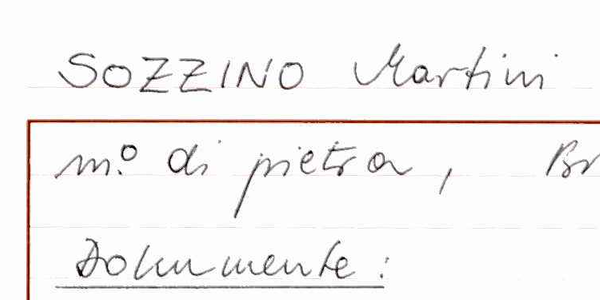 SOZZINO Martini
m.º di pietra,
Dokumente: